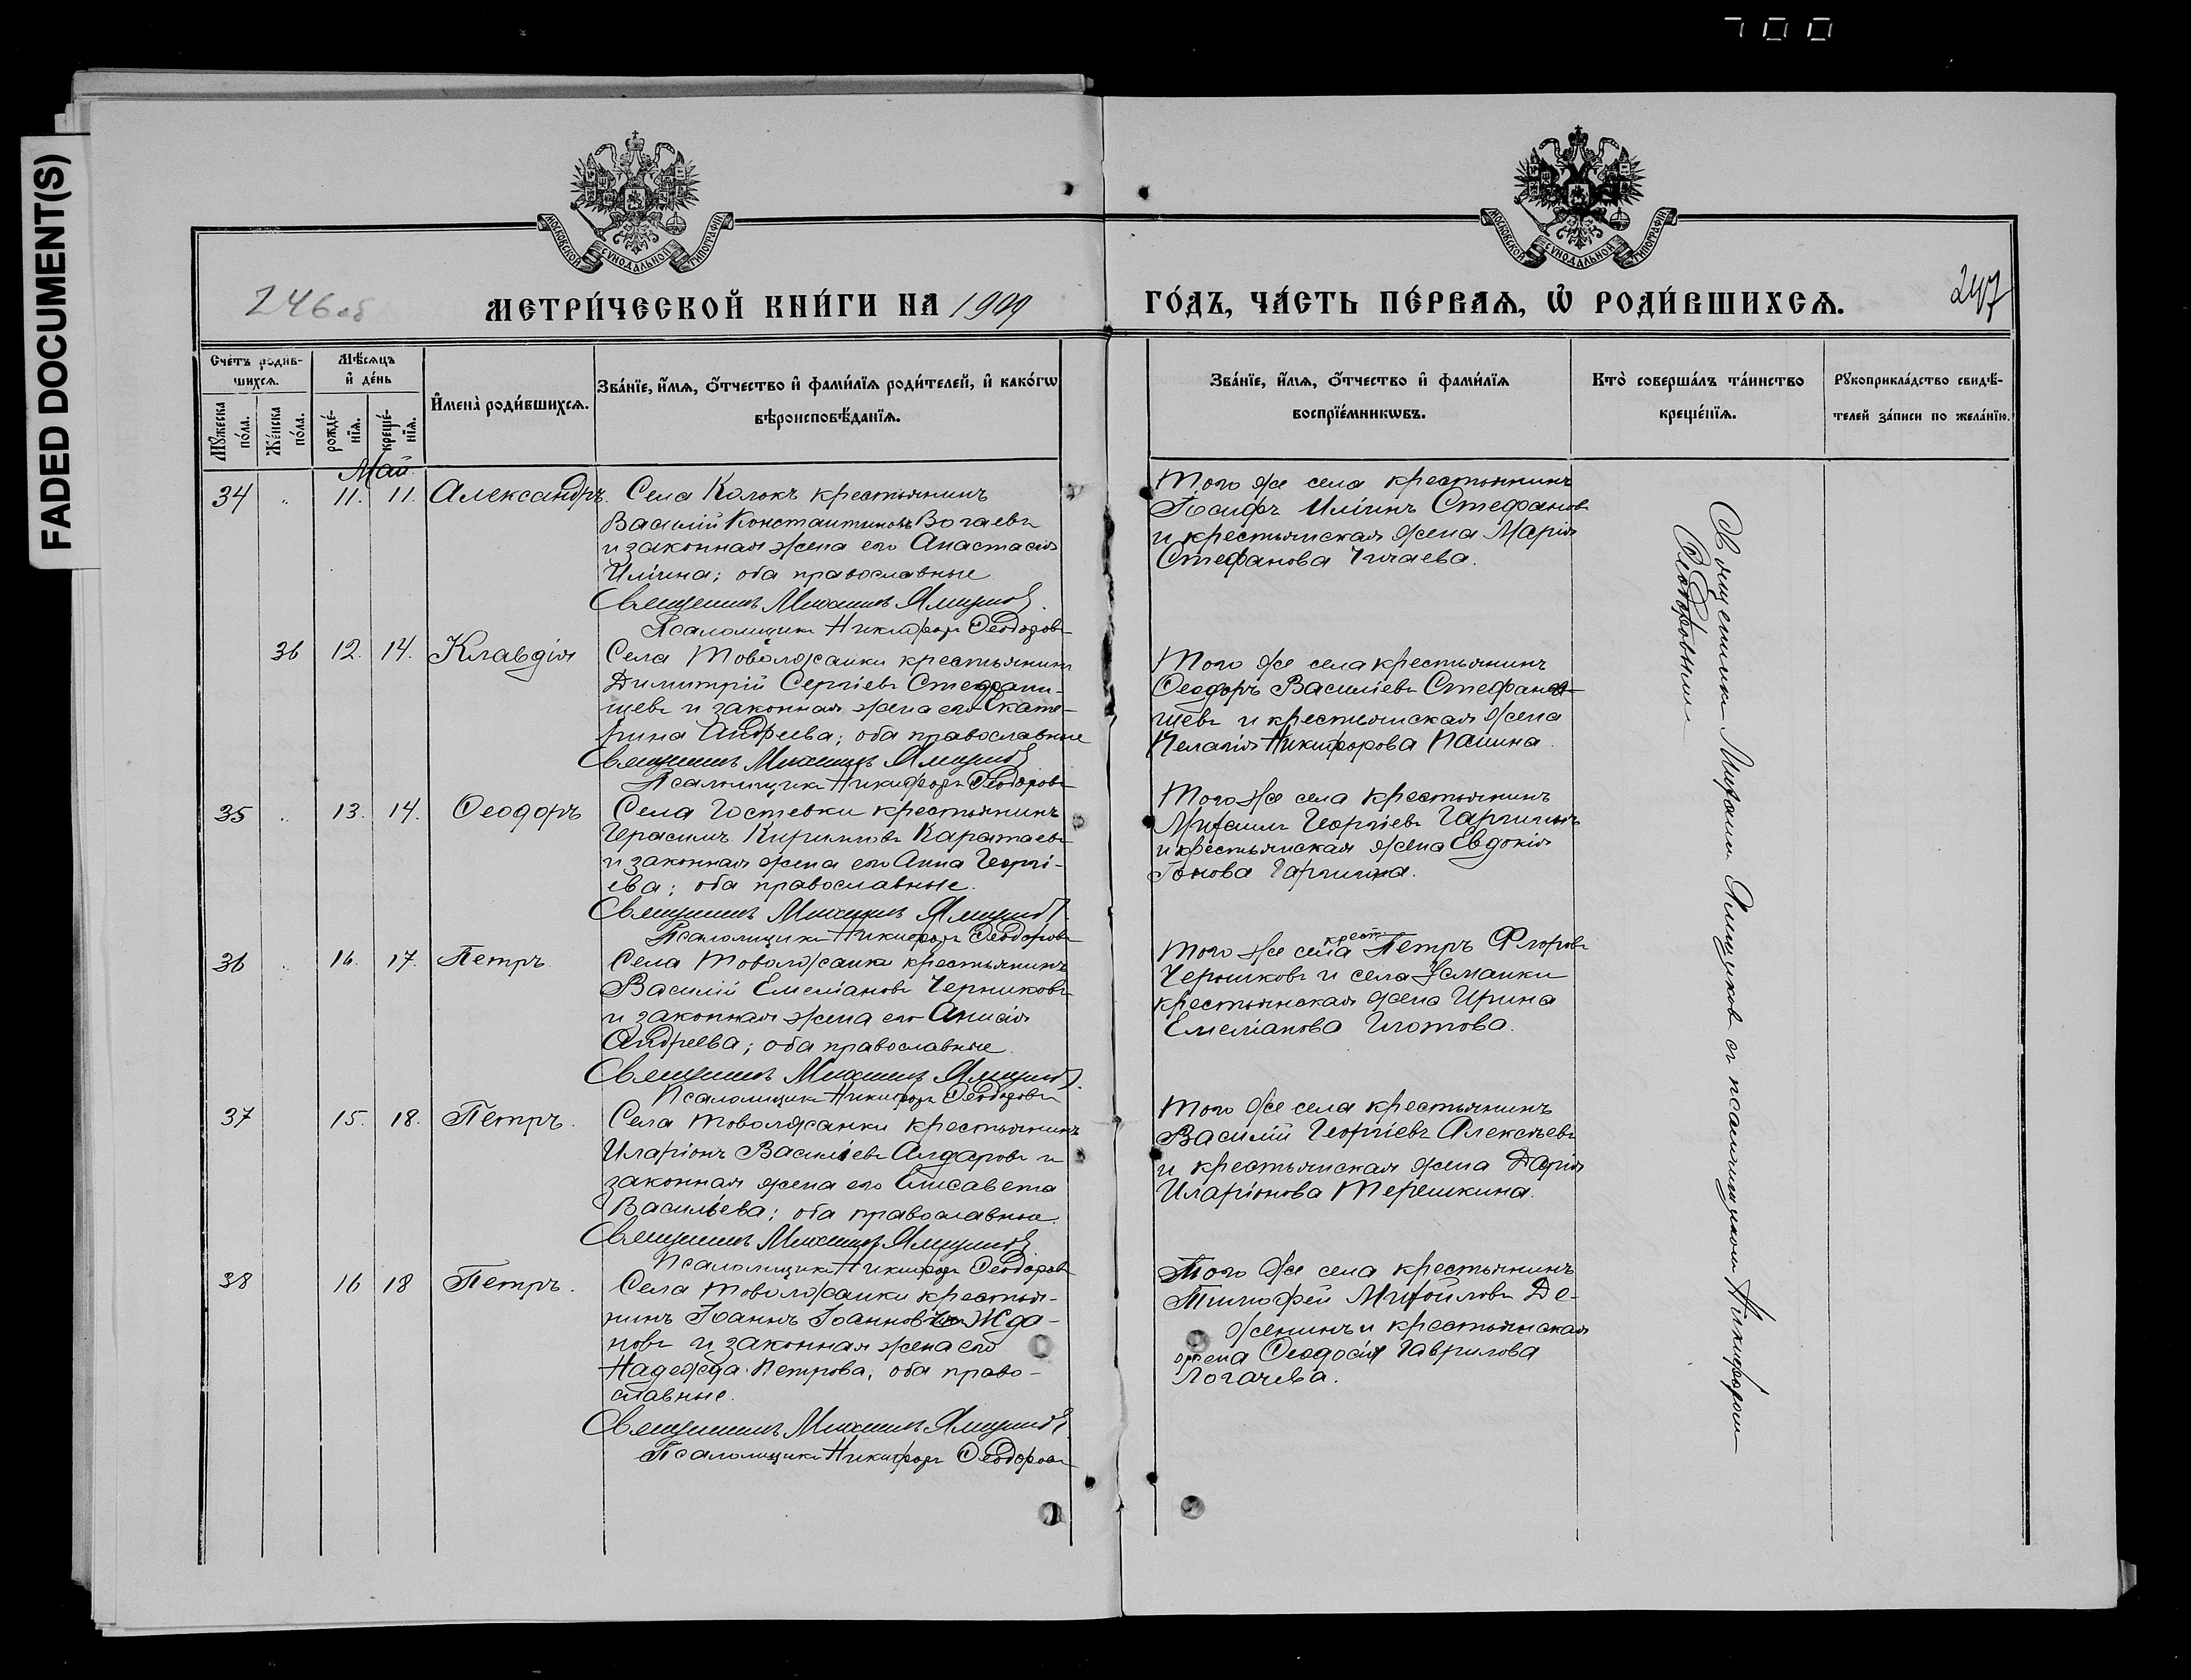 700
FADED DOCUMENT(S)
МОСКОВСКОЙ СѴНОДАЛЬНОЙ ТИПОГРАФІИ
МОСКОВСКОЙ СѴНОДАЛЬНОЙ ТИПОГРАФІИ
246 об
МЕТРИ́ЧЕСКОЙ КНИ́ГИ НА 1909
ГО́ДЪ, ЧА́СТЬ ПЕ́РВАЯ, Ѡ҆ РОДИ́ВШИХСЯ.
247
Сче́тъ родив-
шихся.
Мѣ́сяцъ
и҆ де́нь
Му́жеска по́ла.
Же́нска по́ла.
рожде́-
нїя.
креще́-
нїя.
И҆мена̀ роди́вшихся.
Зва́нїе, и҆́мя, ѻ҆́тчество и҆ фами́лїя роди́телей, и҆ како́гѡ
вѣроисповѣ́данїя.
Зва́нїе, и҆́мя, ѻ҆́тчество и҆ фами́лїя
воспрїе́мникѡвъ.
Кто̀ соверша́лъ та́инство
креще́нїя.
Рꙋкоприкла́дство свидѣ́-
телей за́писи по жела́нїю.
Май.
34 " 11. 11. Александръ. Села Колокъ крестьянинъ
Василій Константиновъ
и законная жена его Анастасія
Иліина; оба православные
Священникъ Михаилъ Ямщиков.
Псаломщикъ Никифоръ Ѳеодоровъ
Того же села крестьянинъ
Іосифъ Иліинъ Стефановъ
и крестьянская жена Марія
Стефанова Чичаева.
36 12. 14. Клавдія Села Товолжанки крестьянинъ
Димитрій Сергіевъ Стефани-
щевъ и законная жена его Екате-
рина Андреева; оба православные
Священникъ Михаилъ Ямщиков
Псаломщикъ Никифоръ Ѳеодоровъ
Того же села крестьянинъ
Ѳеодоръ Василіевъ Стефани-
щевъ и крестьянская жена
Пелагія Никифорова Панина.
35 " 13. 14. Ѳеодоръ Села Гостевки крестьянинъ
Герасимъ Кирилловъ Каратаевъ
и законная жена его Анна Георгі-
ева; оба православные.
Священникъ Михаилъ Ямщиков.
Псаломщикъ Никифоръ Ѳеодоровъ
Того же села крестьянинъ
Михаилъ Георгіевъ Гаршинъ
и крестьянская жена Евдокія
Іонова Гаршина.
36 " 16. 17. Петръ Села Товолжанки крестьянинъ
Василій Емеліановъ Черниковъ
и законная жена его Анисія
Андреева; оба православные.
Священникъ Михаилъ Ямщиков.
Псаломщикъ Никифоръ Ѳеодоровъ
Того же села крест. Петръ Флоровъ
Черниковъ и села Усманки
крестьянская жена Ирина
Емеліанова Глотова.
37 15. 18. Петръ. Села Товолжанки крестьянинъ
Иларіонъ Василіевъ Алдаровъ и
законная жена его Елисавета
Василіева; оба православные.
Священникъ Михаилъ Ямщиков
Псаломщикъ Никифоръ Ѳеодоровъ
Того же села крестьянинъ
Василій Георгіевъ Алексѣевъ
и крестьянская жена Дарія
Иларіонова Терешкина.
38 16 18 Петръ. Села Товолжанки крестья-
нинъ Іоаннъ Іоанновъ Жда-
новъ и законная жена его
Надежда Петрова; оба право-
славные.
Священникъ Михаилъ Ямщиков.
Псаломщикъ Никифоръ Ѳеодоровъ
Того же села крестьянинъ
Тимофей Михайловъ Де-
женинъ и крестьянская
жена Ѳеодосія Гаврилова
Логачева.
Священникъ Михаилъ Ямщиковъ съ псаломщикомъ Никифоромъ
Ѳеодоровымъ